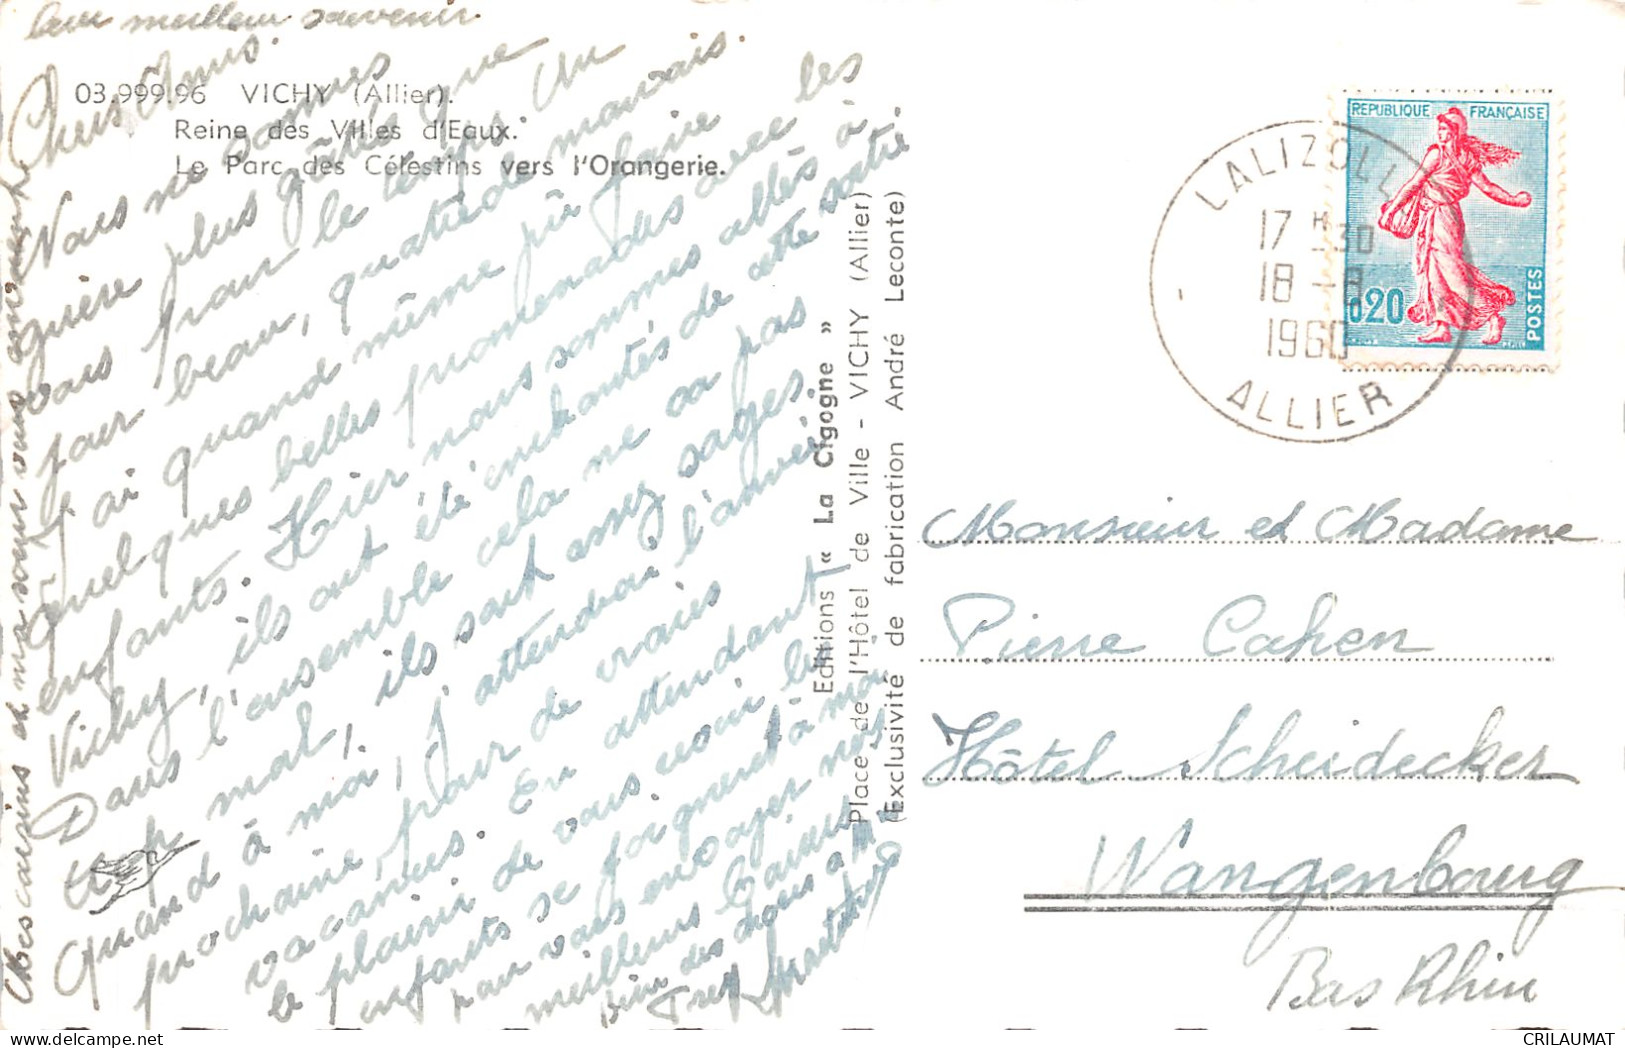 03.999.96 VICHY (Allier).
Reine des Villes d'Eaux.
Le Parc des Célestins vers l'Orangerie.
Chers Amis.
Nous ne sommes
guère plus gâtés que
vous pour le temps. Un
jour beau, quatre de mauvais.
J'ai quand même pu faire
quelques belles promenades avec les
enfants. Hier nous sommes allés à
Vichy, ils ont été enchantés de cette sortie
Dans l'ensemble cela ne va pas
trop mal, ils sont assez sages.
Quand à moi, j'attendrai l'année
prochaine pour de vraies
vacances. En attendant
le plaisir de vous revoir les
enfants se joignent à moi
pour vous envoyer nos
meilleurs baisers
Mes cousins et ma soeur vous envoient
leur meilleur souvenir
Editions « La Cigogne »
Place de l'Hôtel de Ville - VICHY (Allier)
(Exclusivité de fabrication André Leconte)
REPUBLIQUE FRANÇAISE
0,20
POSTES
LALIZOLLE
17 H 30
18 - 8
1960
ALLIER
Monsieur et Madame
Pierre Cahen
Hôtel Scheidecker
Wangenbourg
Bas Rhin
CRILAUMAT